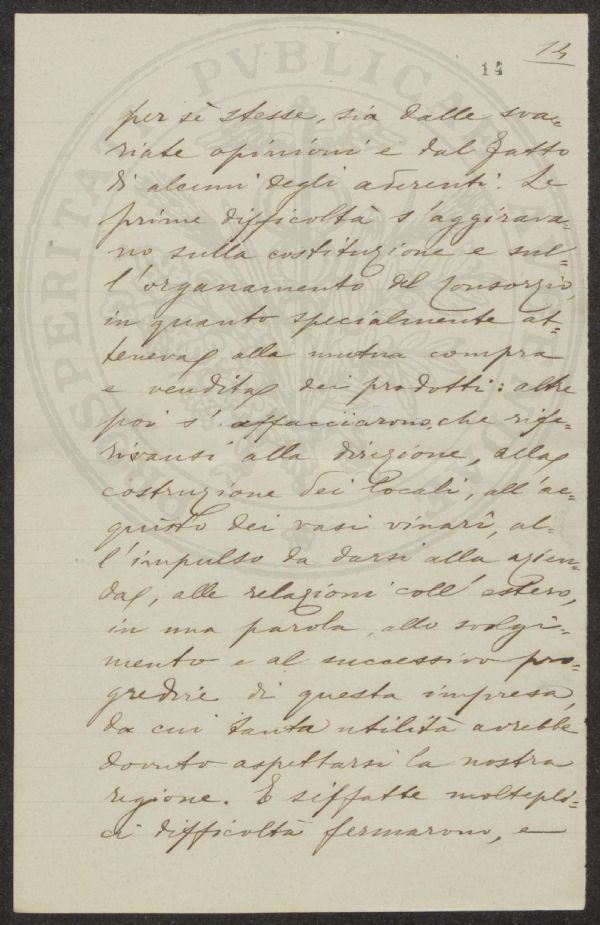 14
14
per sè stesse, sia dalle sva=
riate opinioni e dal fatto
di alcuni degli aderenti. Le
prime difficoltà s'aggirava=
no sulla costituzione e sul=
l'organamento del Consorzio,
in quanto specialmente at=
teneva alla mutua compra
e vendita dei prodotti: altre
poi s'affacciarono, che rife=
rivansi alla direzione, alla
costruzione dei locali, all'ac=
quisto dei vasi vinarî, al=
l'impulso da darsi alla azien=
da, alle relazioni coll'estero,
in una parola, allo svolgi=
mento e al successivo pro=
gredire di questa impresa,
da cui tanta utilità avrebbe
dovuto aspettarsi la nostra
regione. E siffatte moltepli=
ci difficoltà fermarono, e